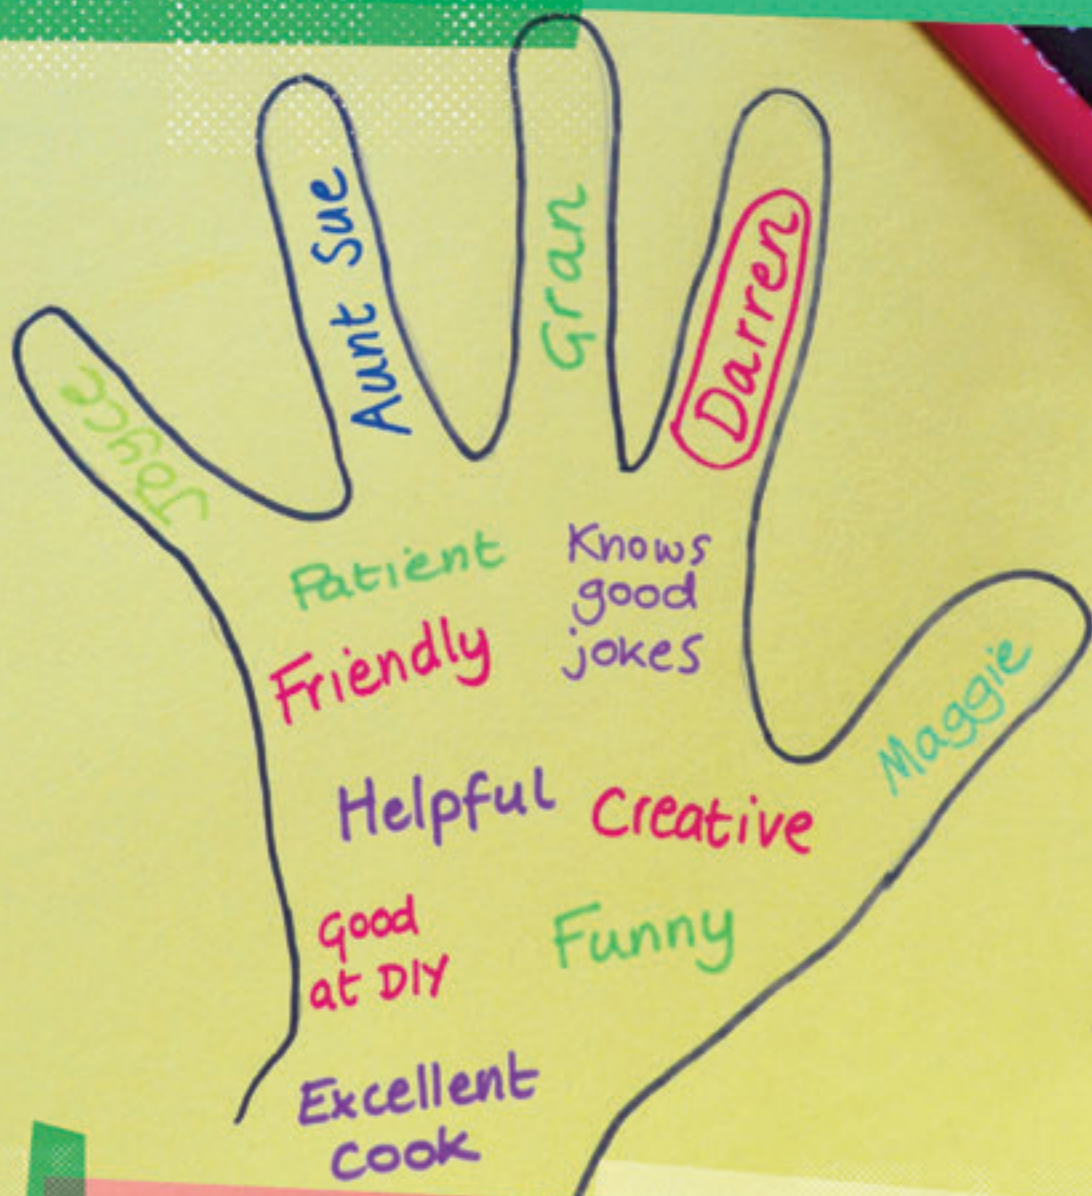 Joyce
Aunt Sue
Gran
Darren
Maggie
Patient
Knows
good
jokes
Friendly
Helpful
Creative
Good
at DIY
Funny
Excellent
Cook